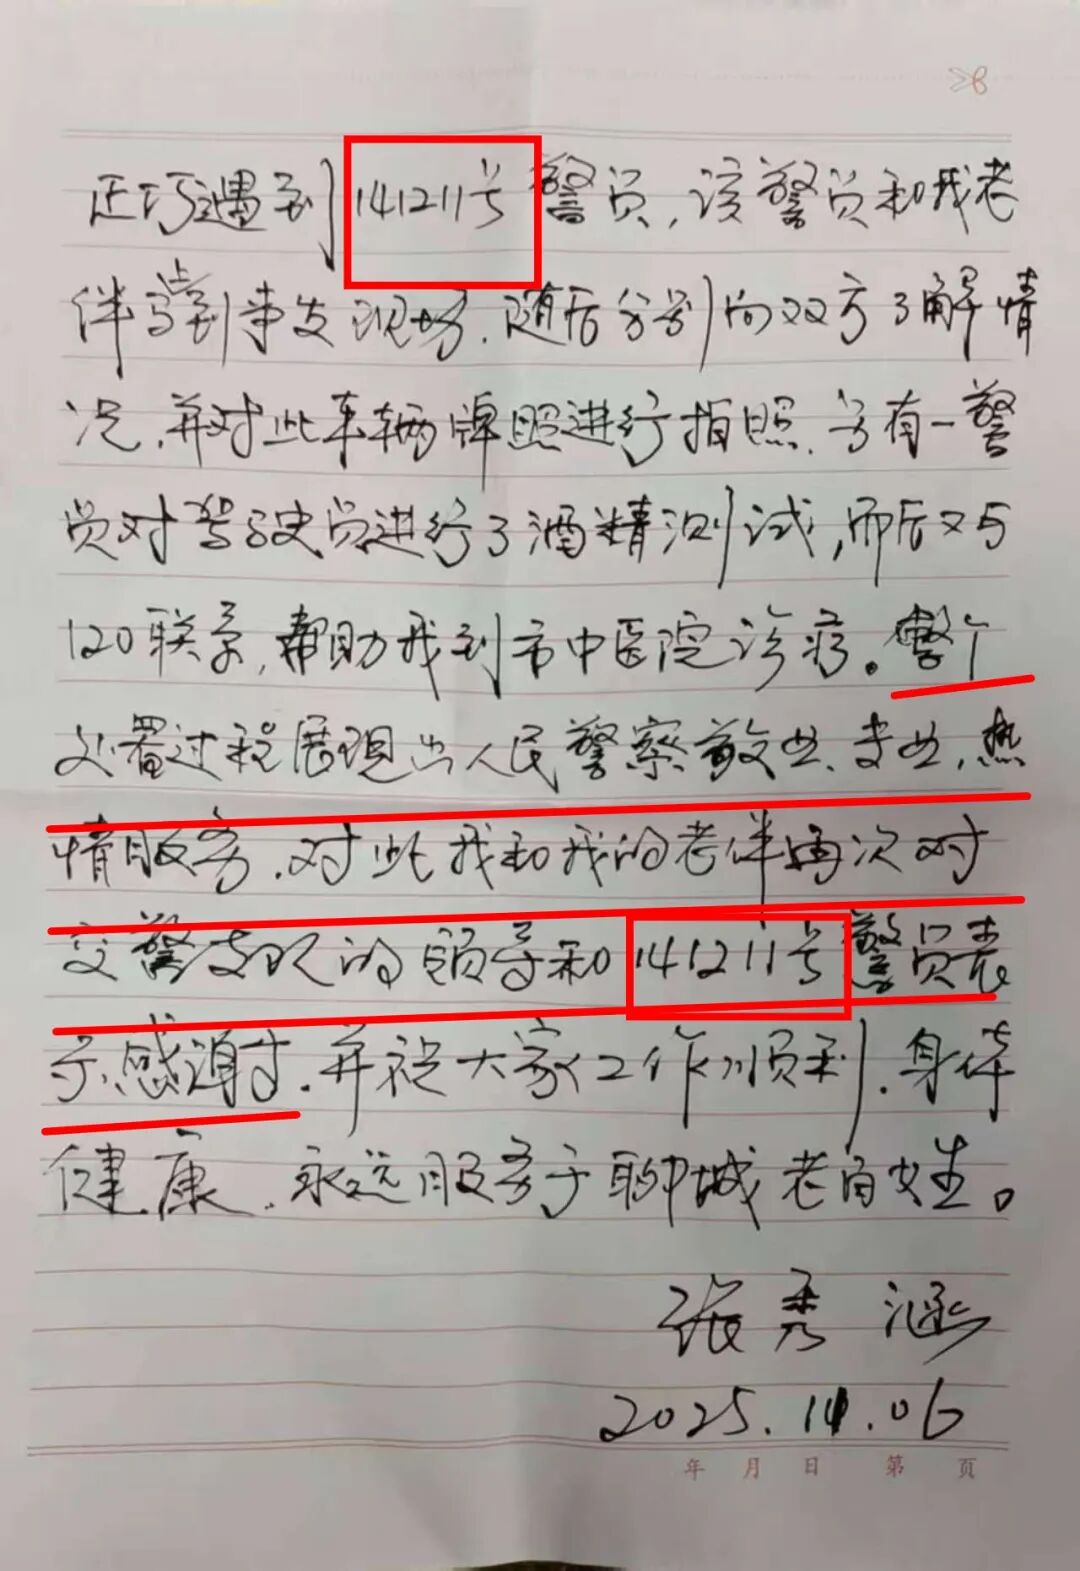 正巧遇到141211号警员,该警员和我老
伴马上到事发现场.随后分别向双方了解情
况,并对此车辆牌照进行拍照.另有一警
员对驾驶员进行了酒精测试,而后又与
120联系,帮助我到市中医院诊疗。整个
处置过程展现出人民警察敬业、专业,热
情服务.对此我和我的老伴再次对
交警支队的领导和141211号警员表
示感谢.并祝大家工作顺利.身体
健康.永远服务于聊城老百姓。
张秀涵
2025.11.06
年 月 日 第 页